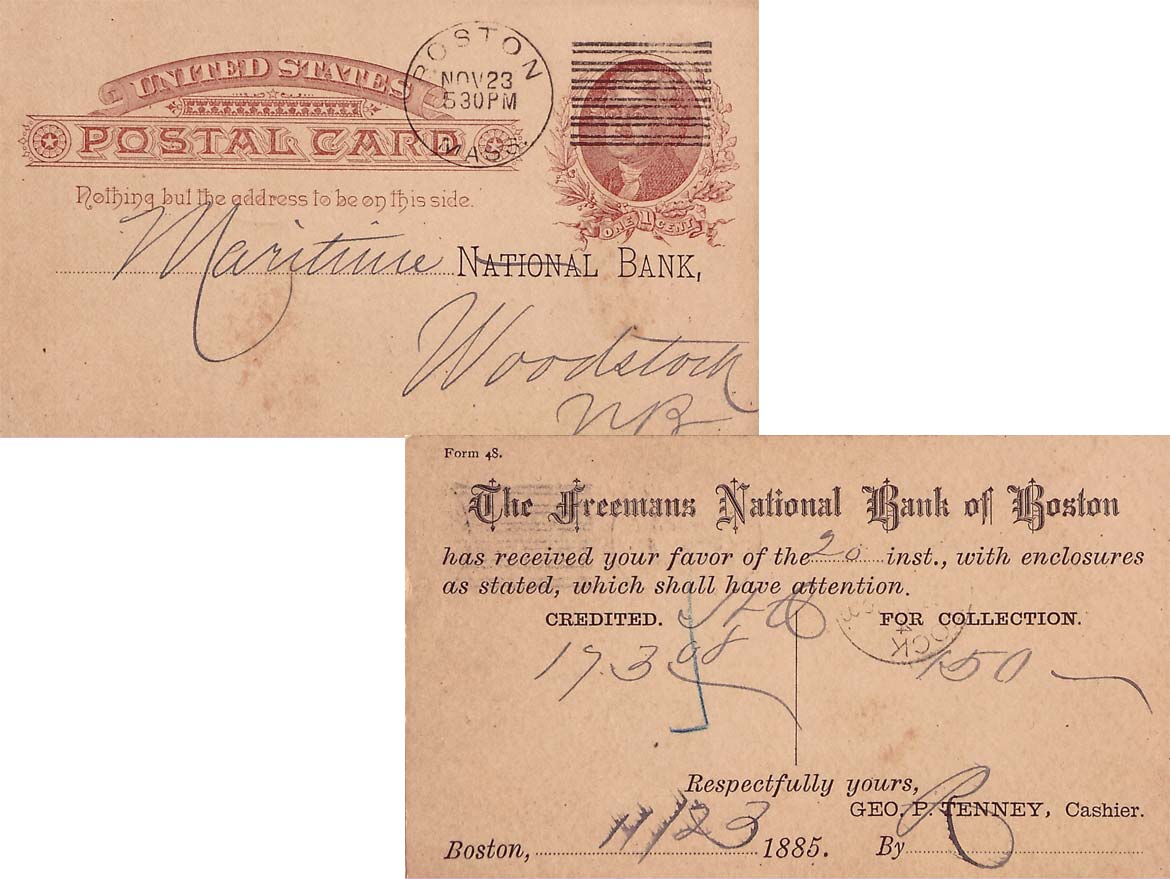 UNITED STATES
POSTAL CARD
Nothing but the address to be on this side.
BOSTON
NOV 23
5 30 PM
MASS.
ONE 1 CENT
Maritime NATIONAL BANK,
Woodstock
NB
Form 48.
The Freemans National Bank of Boston
has received your favor of the 20 inst., with enclosures
as stated, which shall have attention.
CREDITED. FOR COLLECTION.
OCK
173 98 150
Respectfully yours,
GEO. P. TENNEY, Cashier.
Boston, 11/23 1885. By R